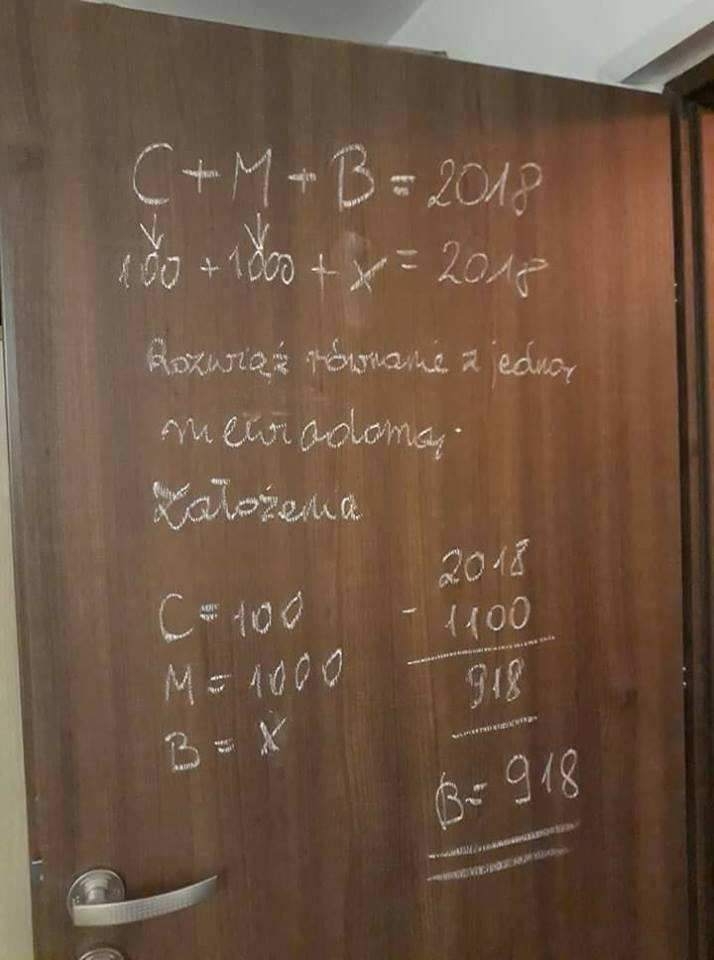 C + M + B = 2018
100 + 1000 + x = 2018
Rozwiąż równanie z jedną
niewiadomą.
Założenia
C = 100
M = 1000
B = x
2018
- 1100
918
B = 918